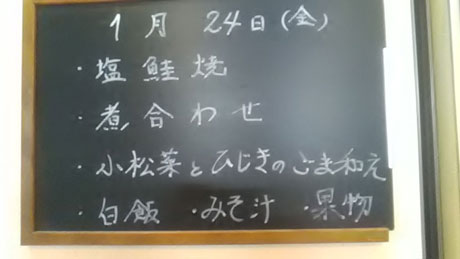 1月 24日(金)
・塩鮭焼
・煮合わせ
・小松菜とひじきのごま和え
・白飯 ・みそ汁 ・果物